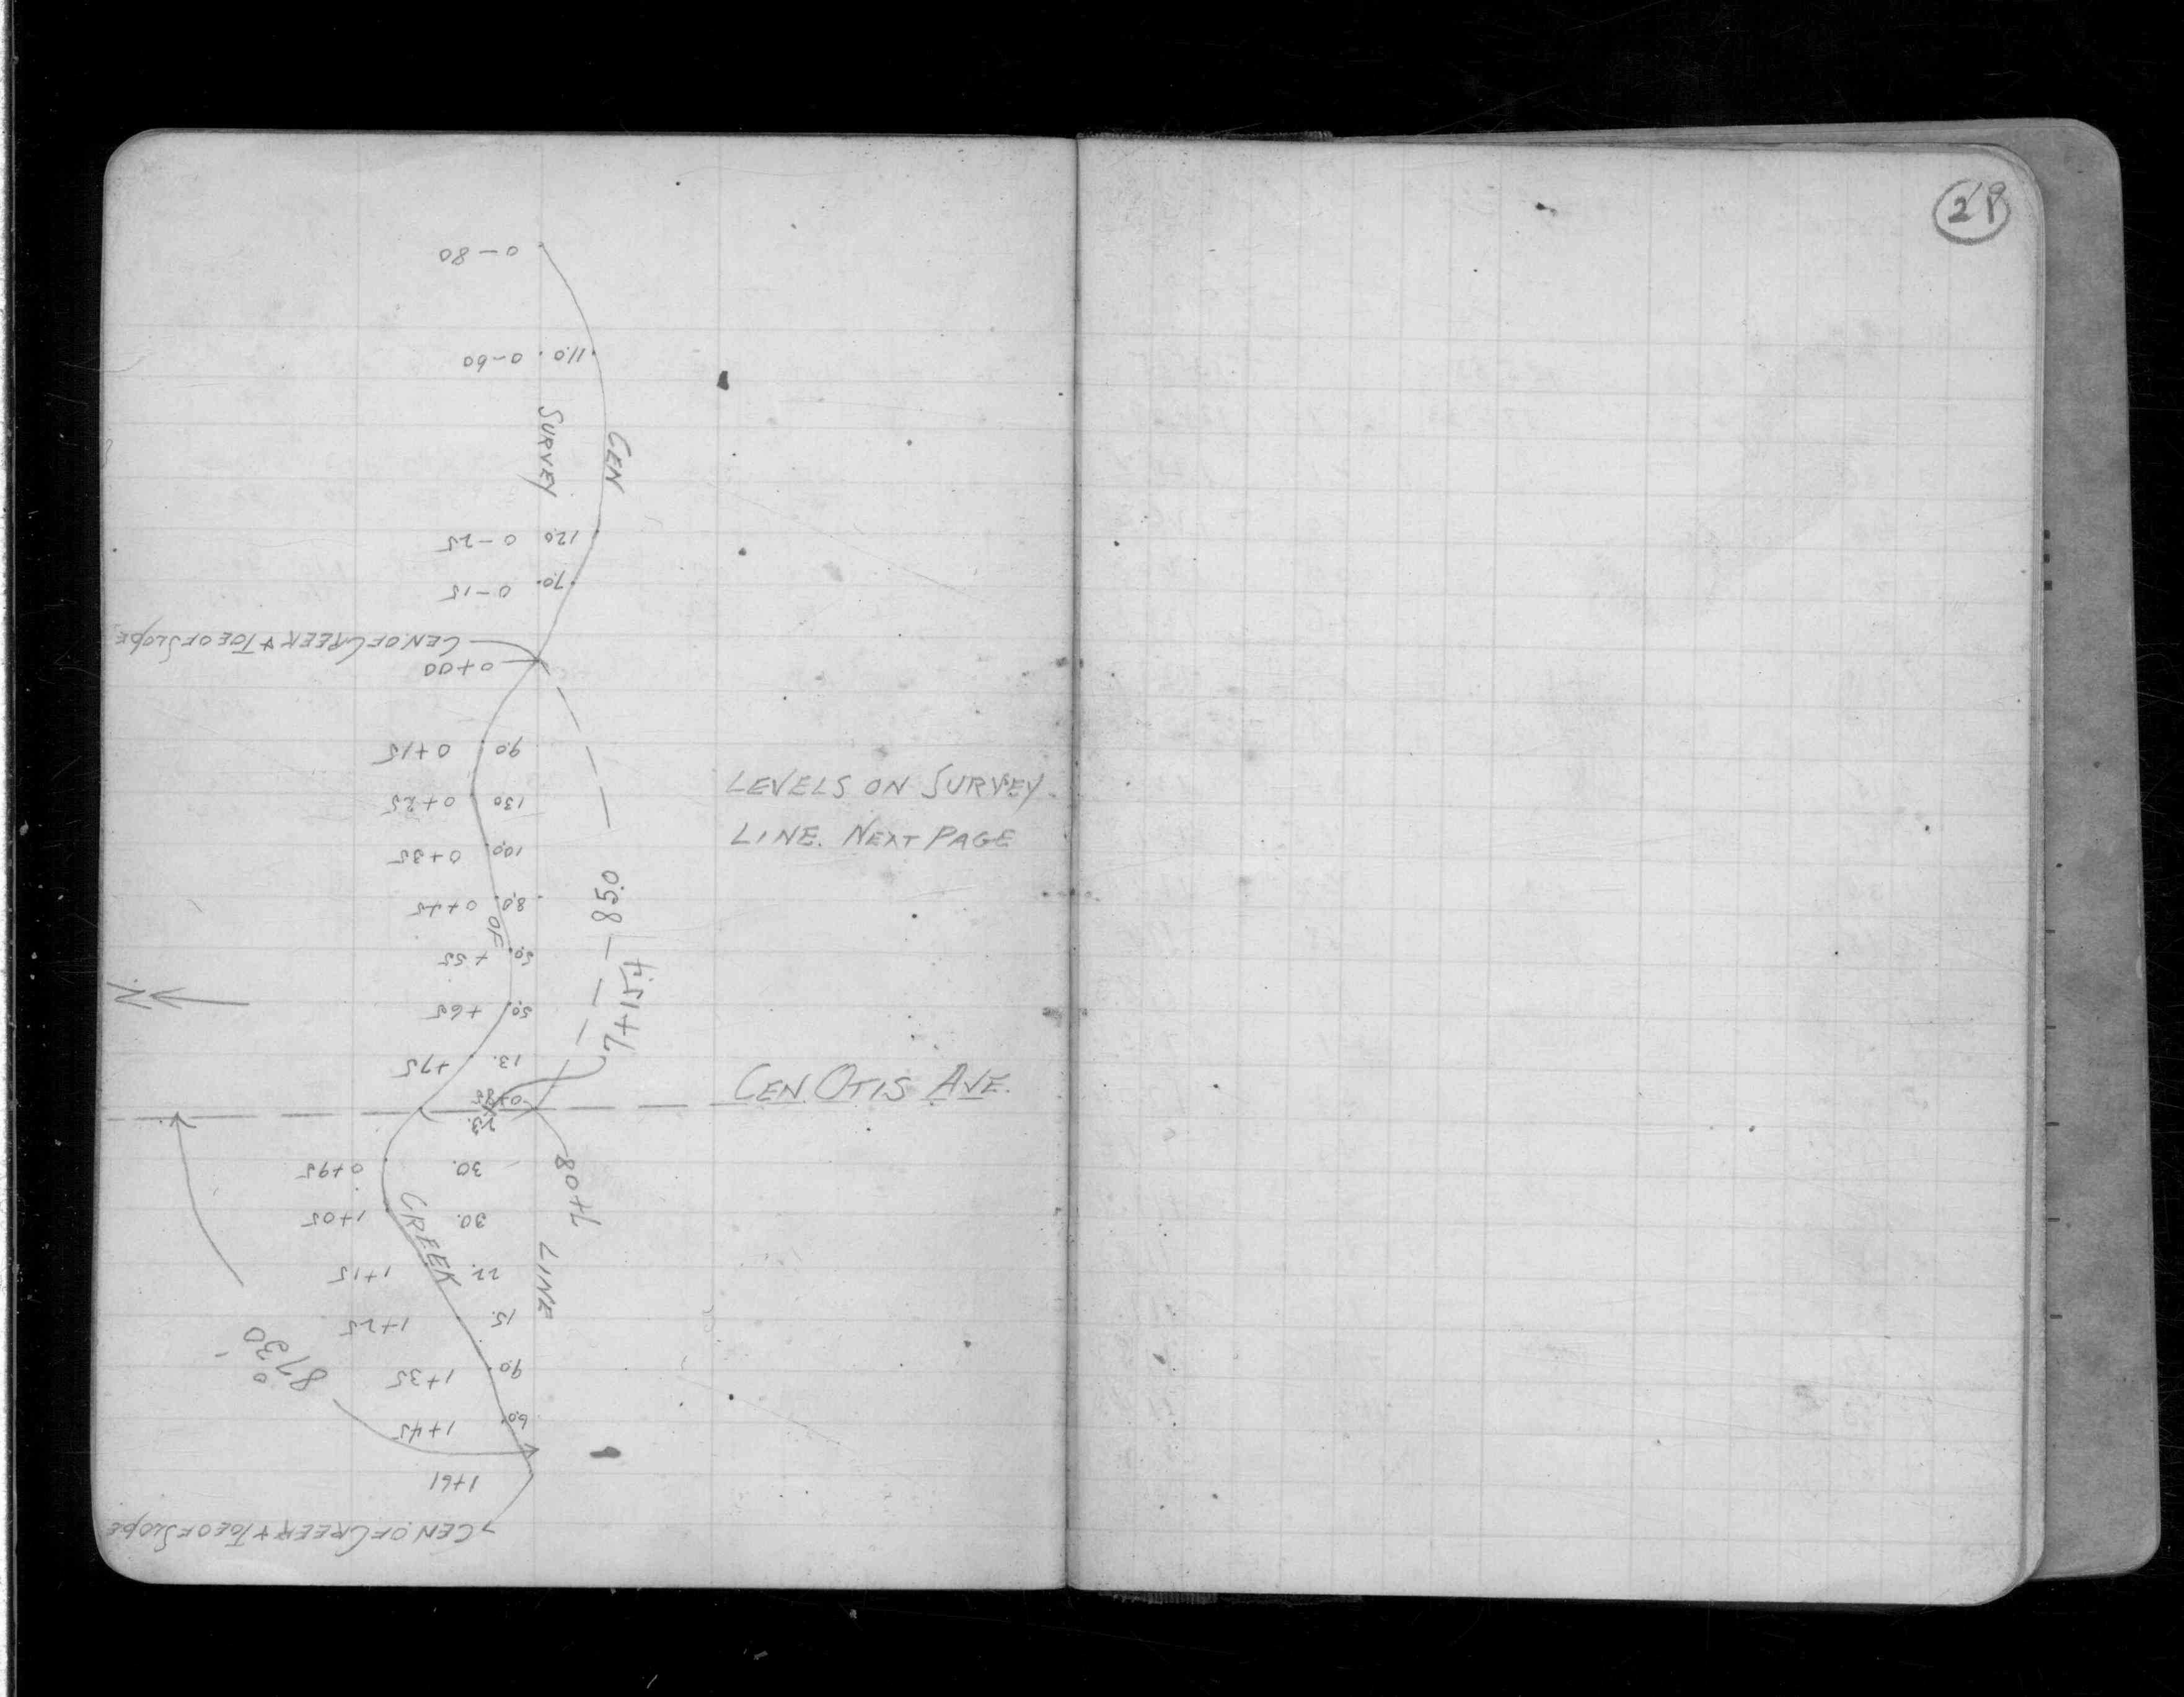 21
0-80
11.0 0-60
SURVEY
CEN
12.0 0-25
7.0 0-15
CEN. OF CREEK & TOE OF SLOPE
0+00
9.0 0+15
13.0 0+25
LEVELS ON SURVEY
LINE. NEXT PAGE
10.0 0+35
8.0 0+45
OF
85.0
5.0 +55
7+15.4
N
5.0 +65
13. +75
0+85
23.
CEN. OTIS AVE.
30. 0+95
7+08
30. 1+05
CREEK
LINE
22. 1+15
15. 1+25
87° 30'
9.0 1+35
6.0 1+45
1+61
CEN. OF CREEK & TOE OF SLOPE